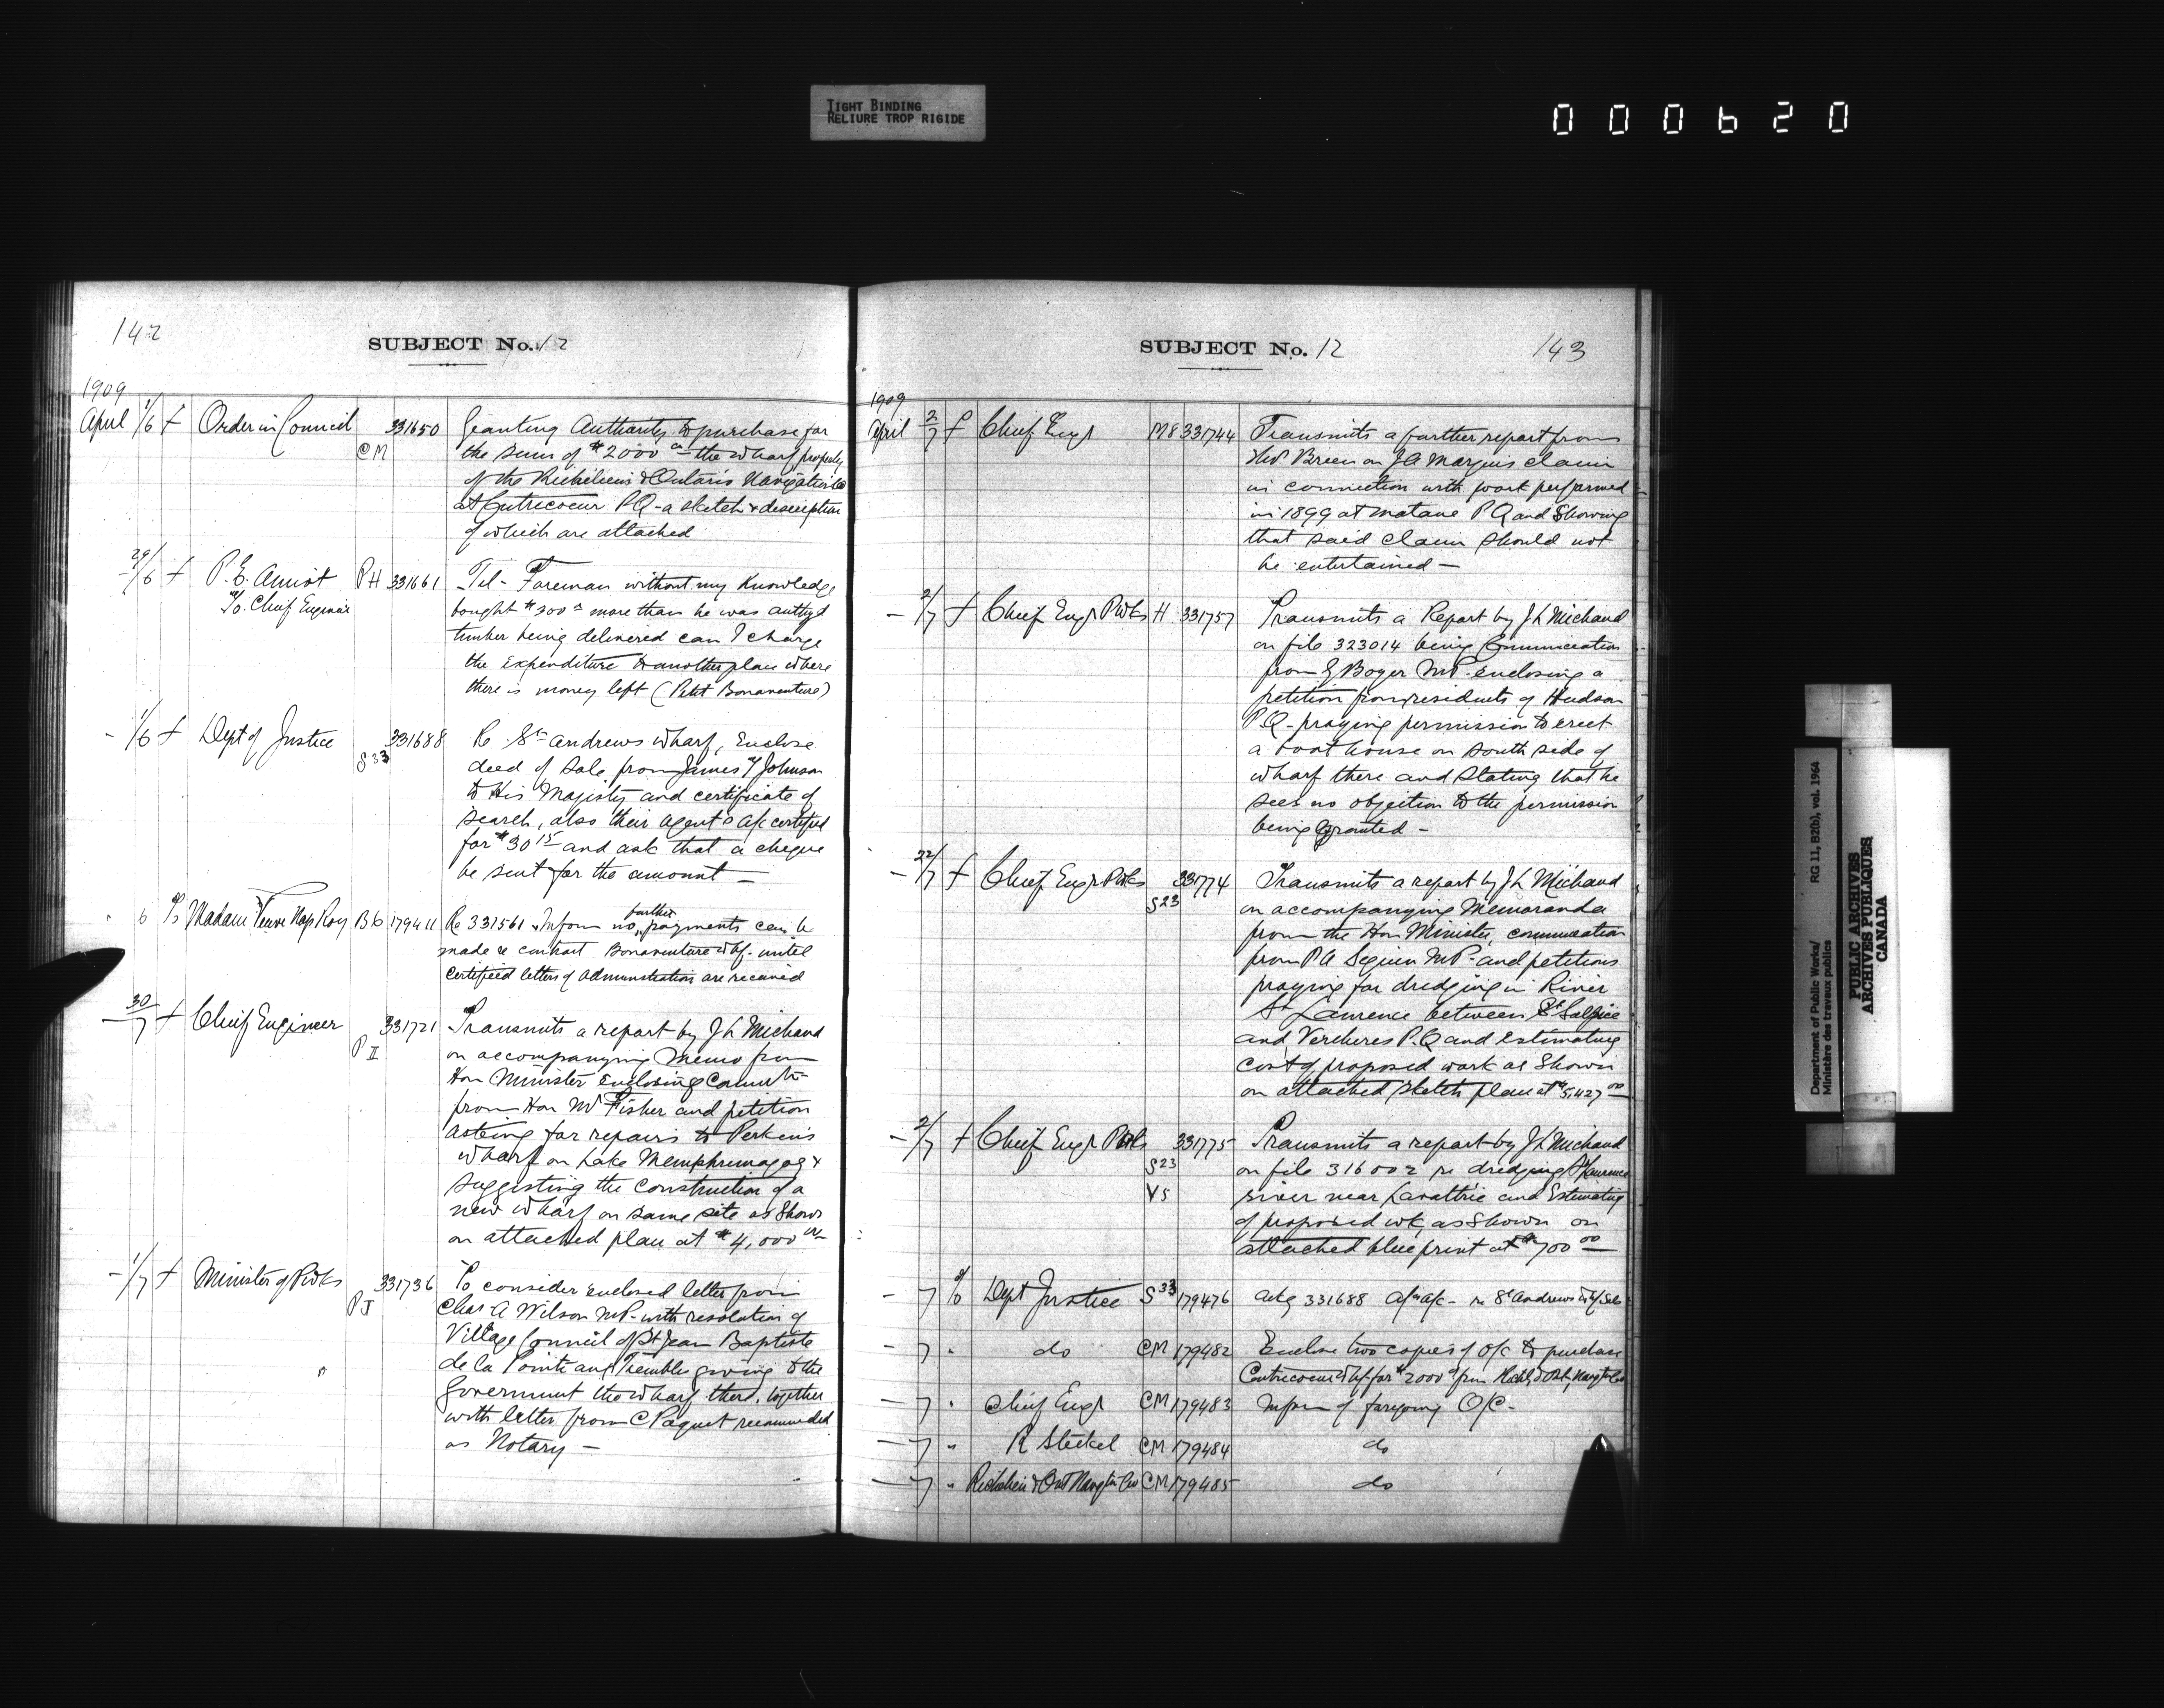 TIGHT BINDING
RELIURE TROP RIGIDE
000620
142
SUBJECT No. 12
1909
April 1/6 f Order in Council CM 331650 Granting Authority to purchase for
the sum of $2000 00 the wharf property
of the Richelieu & Ontario Navigation Co
at Contrecoeur PQ - a sketch & description
of which are attached
- 29/6 f P. E. Amiot PH 331661 Tel - Foreman without my knowledge
To. Chief Engineer bought $300 more than he was authzd
timber being delivered can I charge
the expenditure to another place where
there is money left (Petit Bonaventure)
- 1/6 f Dept of Justice S33 331688 Re St Andrews wharf, Enclose
deed of sale from James Johnson
to His Majesty and certificate of
search, also their agent's a/c certified
for $30 15 and ask that a cheque
be sent for the amount -
" 6 To Madam Veuve Nap Roy B6 179411 Re 331561 Inform no further payments can be
made re contract Bonaventure Whf. until
certified letters of administration are received
- 30/7 f Chief Engineer PII 331721 Transmits a report by J L Michaud
on accompanying memo from
Hon Minister enclosing Commtn
from Hon Mr Fisher and petition
asking for repairs to Perkins
wharf on Lake Memphremagog &
suggesting the construction of a
new wharf on same site as shown
on attached plan at $4,000 00
- 1/7 f Minister of P Wks PJ 331736 To consider enclosed letter from
Chas A Wilson MP - with resolution of
Village Council of St Jean Baptiste
de la Pointe aux Trembles giving to the
Government the wharf there, together
with letter from C Paquet recommended
as Notary -
SUBJECT No. 12
143
1909
April 2/7 f Chief Engr M8 331744 Transmits a further report from
Breen on J A Marquis claim
in connection with work performed
in 1899 at Matane PQ and showing
that said claim should not
be entertained -
- 2/7 f Chief Engr P Wks H 331757 Transmits a Report by J L Michaud
on file 323014 being Communication
from G Boyer MP. enclosing a
petition from residents of Hudson
P.Q - praying permission to erect
a boat house on south side of
wharf there and stating that he
sees no objection to the permission
being granted -
- 22/7 f Chief Engr P Wks S23 331774 Transmits a report by J L Michaud
on accompanying Memoranda
from the Hon Minister, communication
from P A Seguin MP - and petitions
praying for dredging in River
St Laurence between St Sulpice
and Vercheres P.Q and estimating
cost of proposed work as shown
on attached sketch plan at $5,427 00
- 2/7 f Chief Engr P Wks 331775 Transmits a report by J L Michaud
S23 on file 316002 re dredging St Laurence
V5 river near Lavaltrie and Estimating
of proposed wk, as shown on
attached blue print at $700 00
- 7 To Dept Justice S33 179476 Ackg 331688 re St Andrews Whf
- 7 " do CM 179482 Enclose two copies of O/C to purchase
Contrecoeur Whf for $2000 from Richl & Ont, Navgtn Co
- 7 " Chief Engr CM 179483 Inform of foregoing O/C -
- 7 " R Steckel CM 179484 do
- 7 " Richelieu & Ont Navgtn Co CM 179485 do
Department of Public Works/
Ministère des travaux publics
RG 11, B2(b), vol. 1964
PUBLIC ARCHIVES
ARCHIVES PUBLIQUES
CANADA